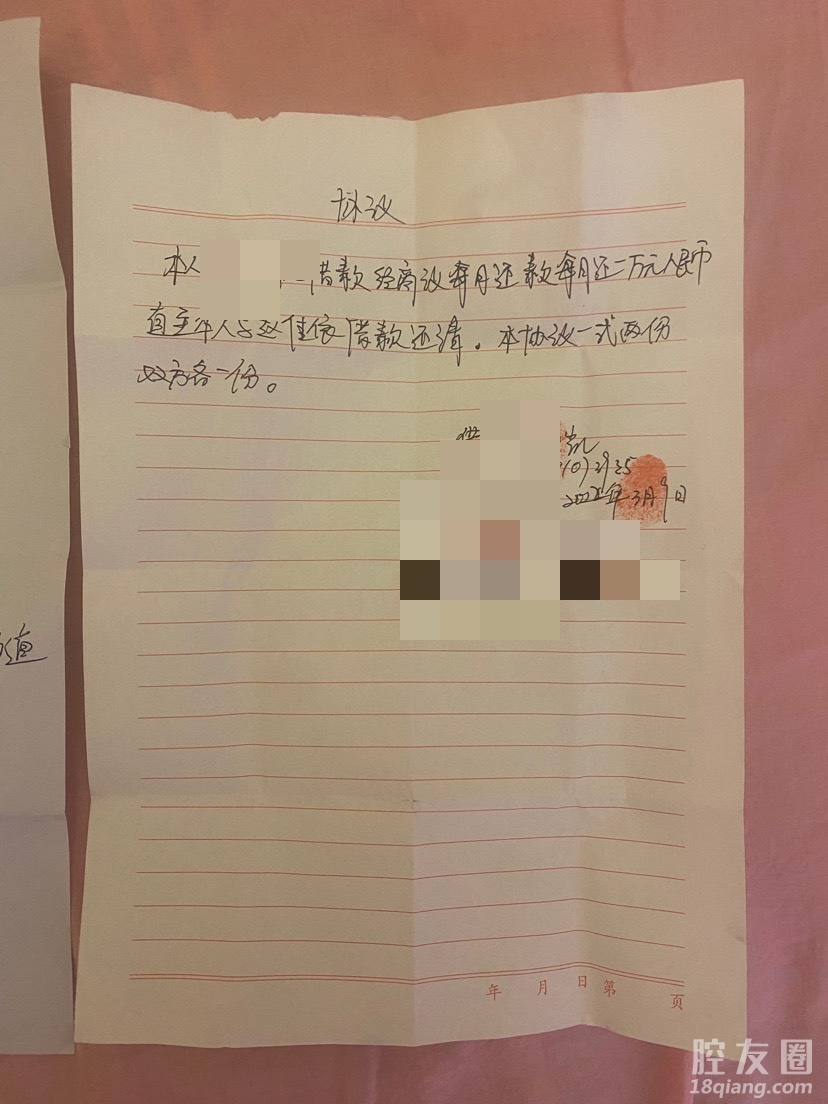 协议
本人 借款经商议每月还款每月还二万元人民币
直至本人与赵佳依借款还清。本协议一式两份
双方各一份。
借 凯
2022年3月9日
年 月 日 第 页
腔友圈
18qiang.com